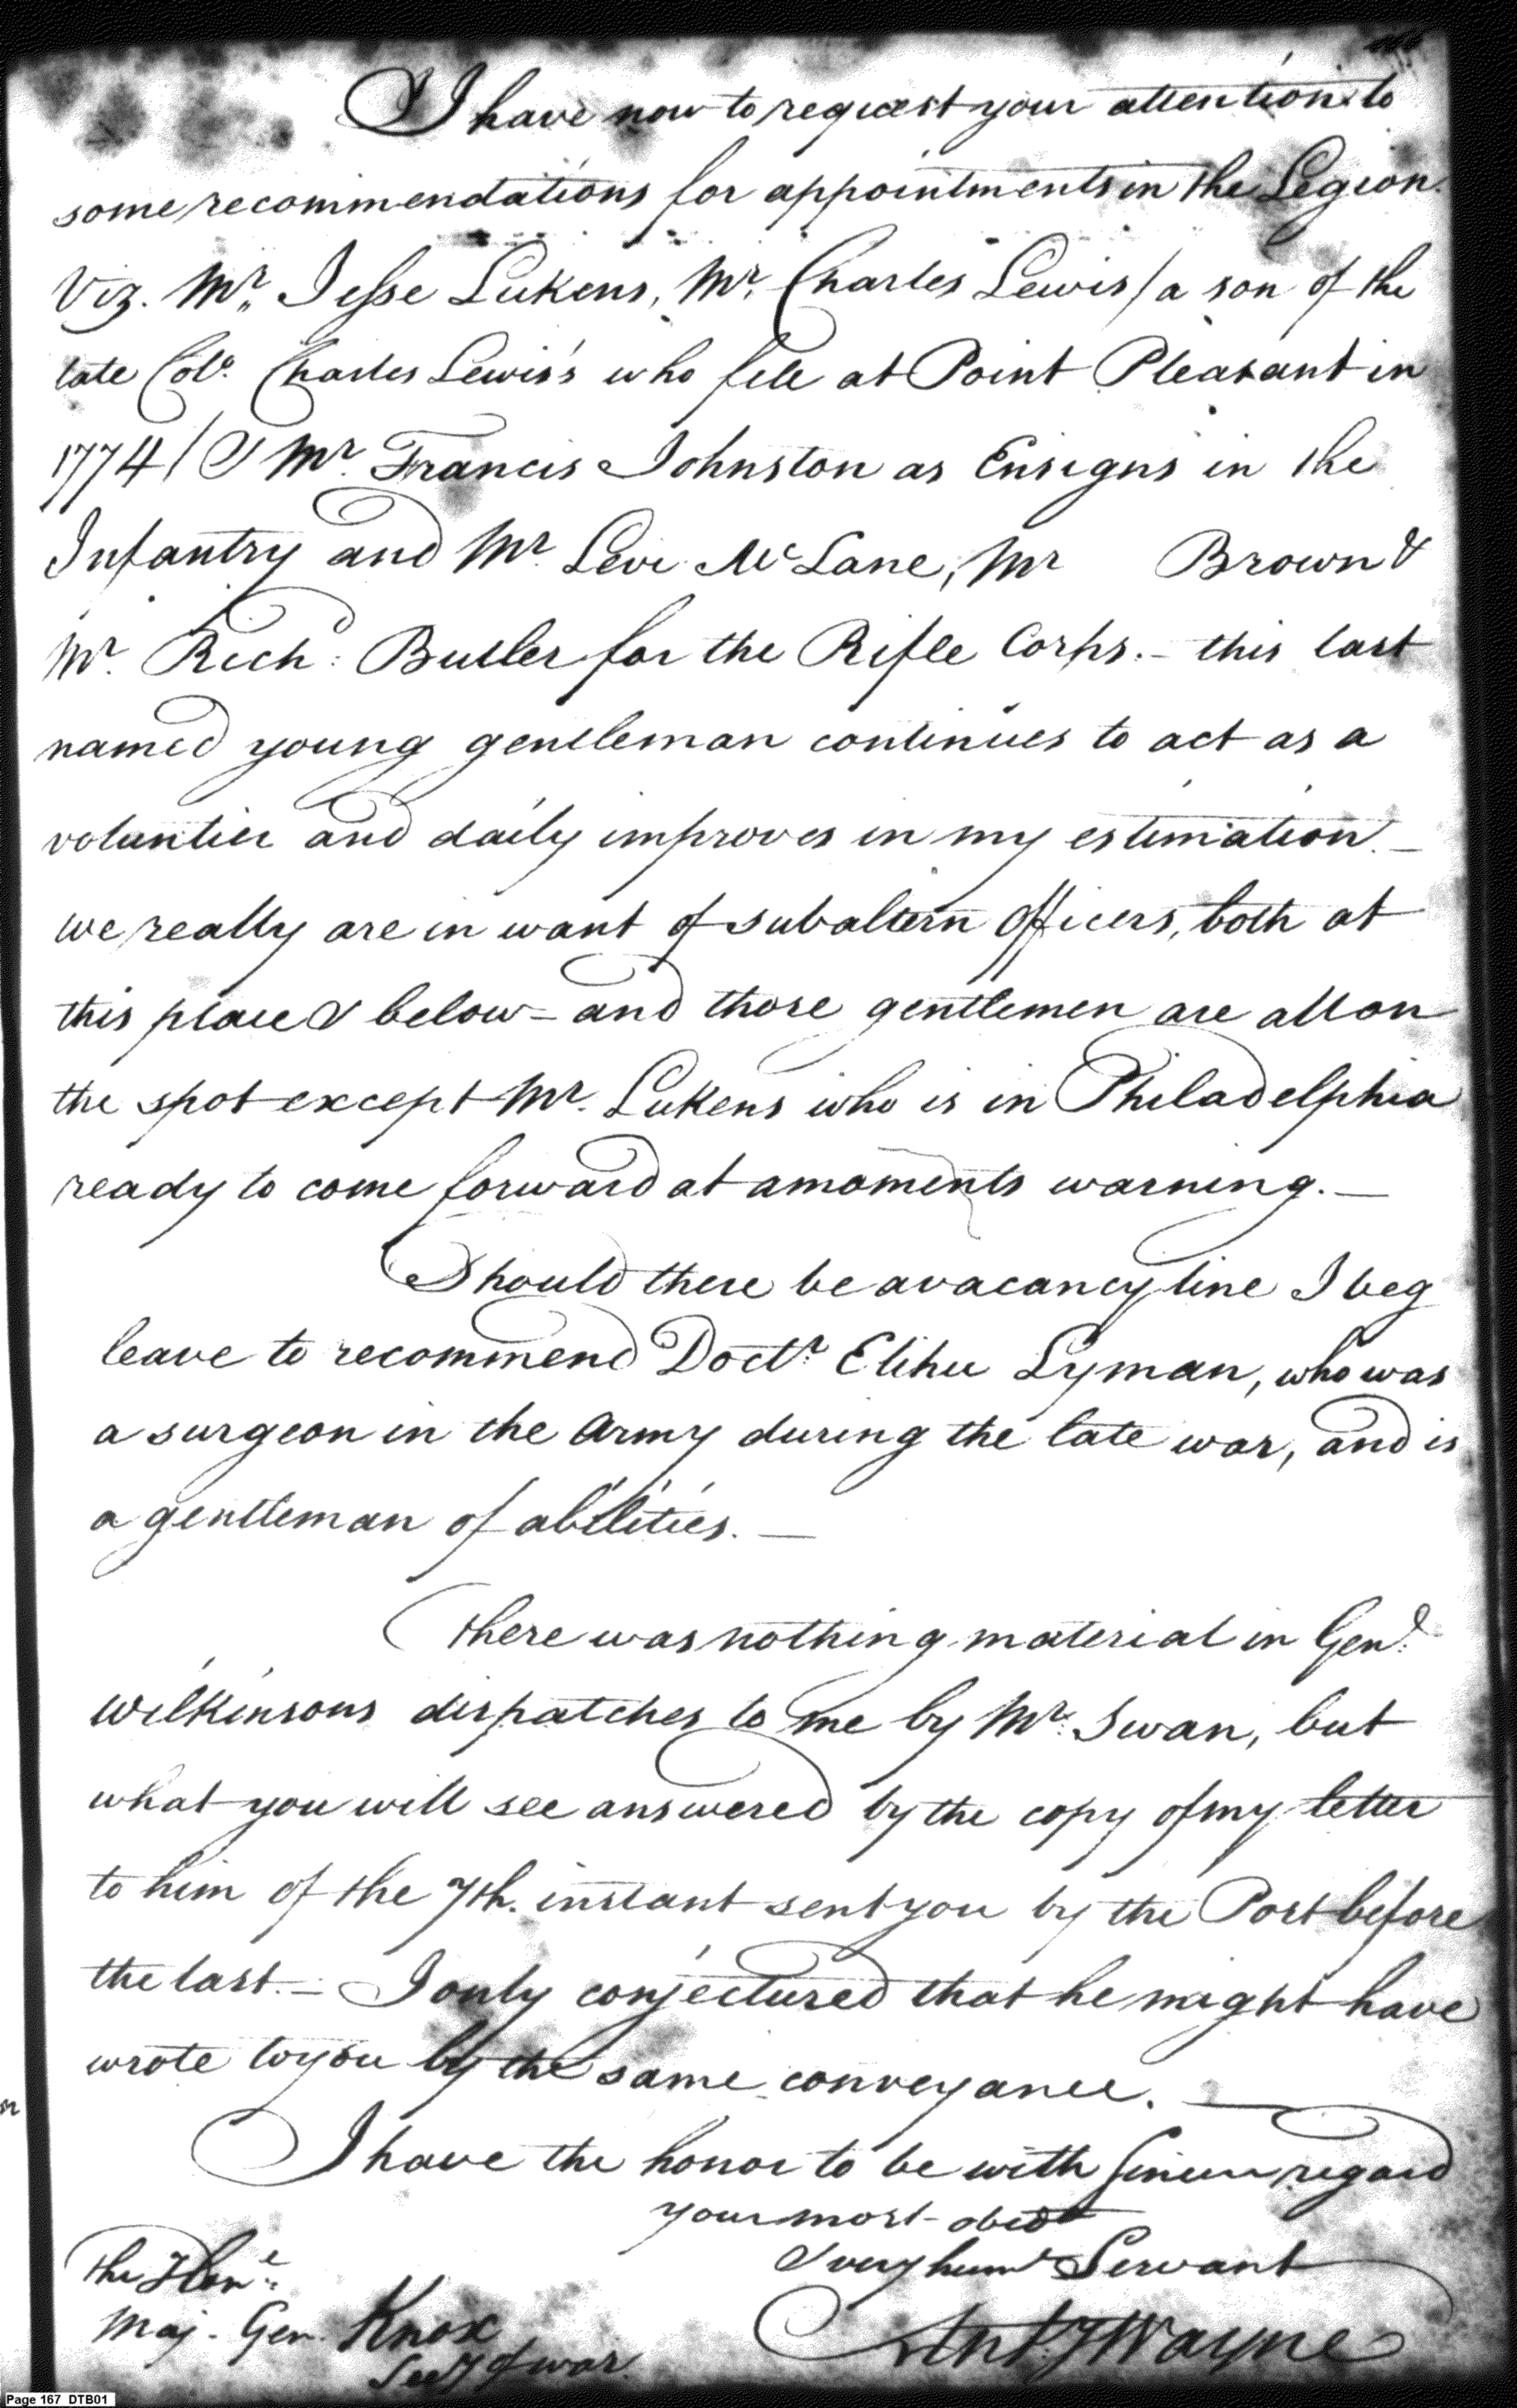 I have now to request your attention to
some recommendations for appointments in the Legion.
Viz. Mr. Jesse Lukens, Mr. Charles Lewis / a son of the
late Colo. Charles Lewis's who fell at Point Pleasant in
1774 / & Mr. Francis Johnston as Ensigns in the
Infantry and Mr. Levi McLane, Mr Brown &
Mr. Richd: Butler for the Rifle Corps. – this last
named young gentleman continues to act as a
voluntier and daily improves in my estimation. –
we really are in want of subaltern Officers, both at
this place & below – and those gentlemen are all on
the spot except Mr. Lukens who is in Philadelphia
ready to come forward at a moments warning. —
Should there be a vacancy in the line I beg
leave to recommend Doctr. Elihu Lyman, who was
a surgeon in the Army during the late war, and is
a gentleman of abilities. —
There was nothing material in Genl.
Wilkinsons dispatches to me by Mr. Swan, but
what you will see answered by the copy of my letter
to him of the 7th. instant sent you by the Post before
the last. – I only conjectured that he might have
wrote to you by the same conveyance. —
I have the honor to be with sincere regard
your most obedt
& very huml Servant
Anty Wayne
The Honl.
Maj. Gen. Knox
Secy of war.
Page 167 DTB01